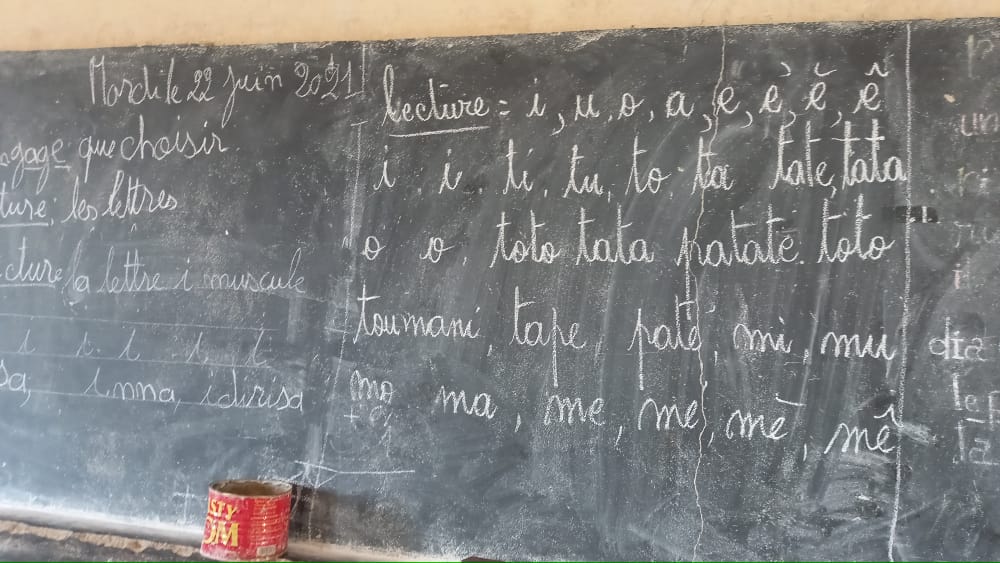 Mardi le 22 juin 2021
que choisir.
les lettres
la lettre i muscule
i i i i i
inna, idirisa
Lecture = i, u, o, a, e, è, ĕ, ê
i . i . ti, tu, to . ta tate, tata
o o, toto tata patate. toto
toumani, tape, paté, mi, mu
mo ma, me, me, mè, mê
dia
STY
OM